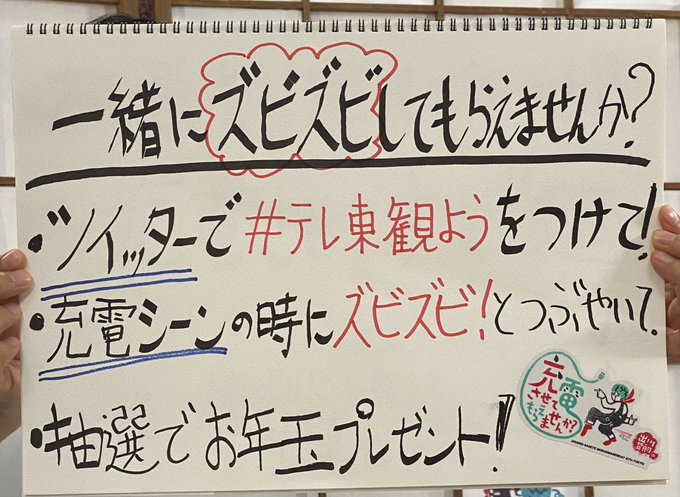 一緒にズビズビしてもらえませんか?
・ツイッターで #テレ東観ようをつけて!
・充電シーンの時にズビズビ!とつぶやいて。
・抽選でお年玉プレゼント!
充電
させて
もらえ
ませんか?
出川
哲朗の